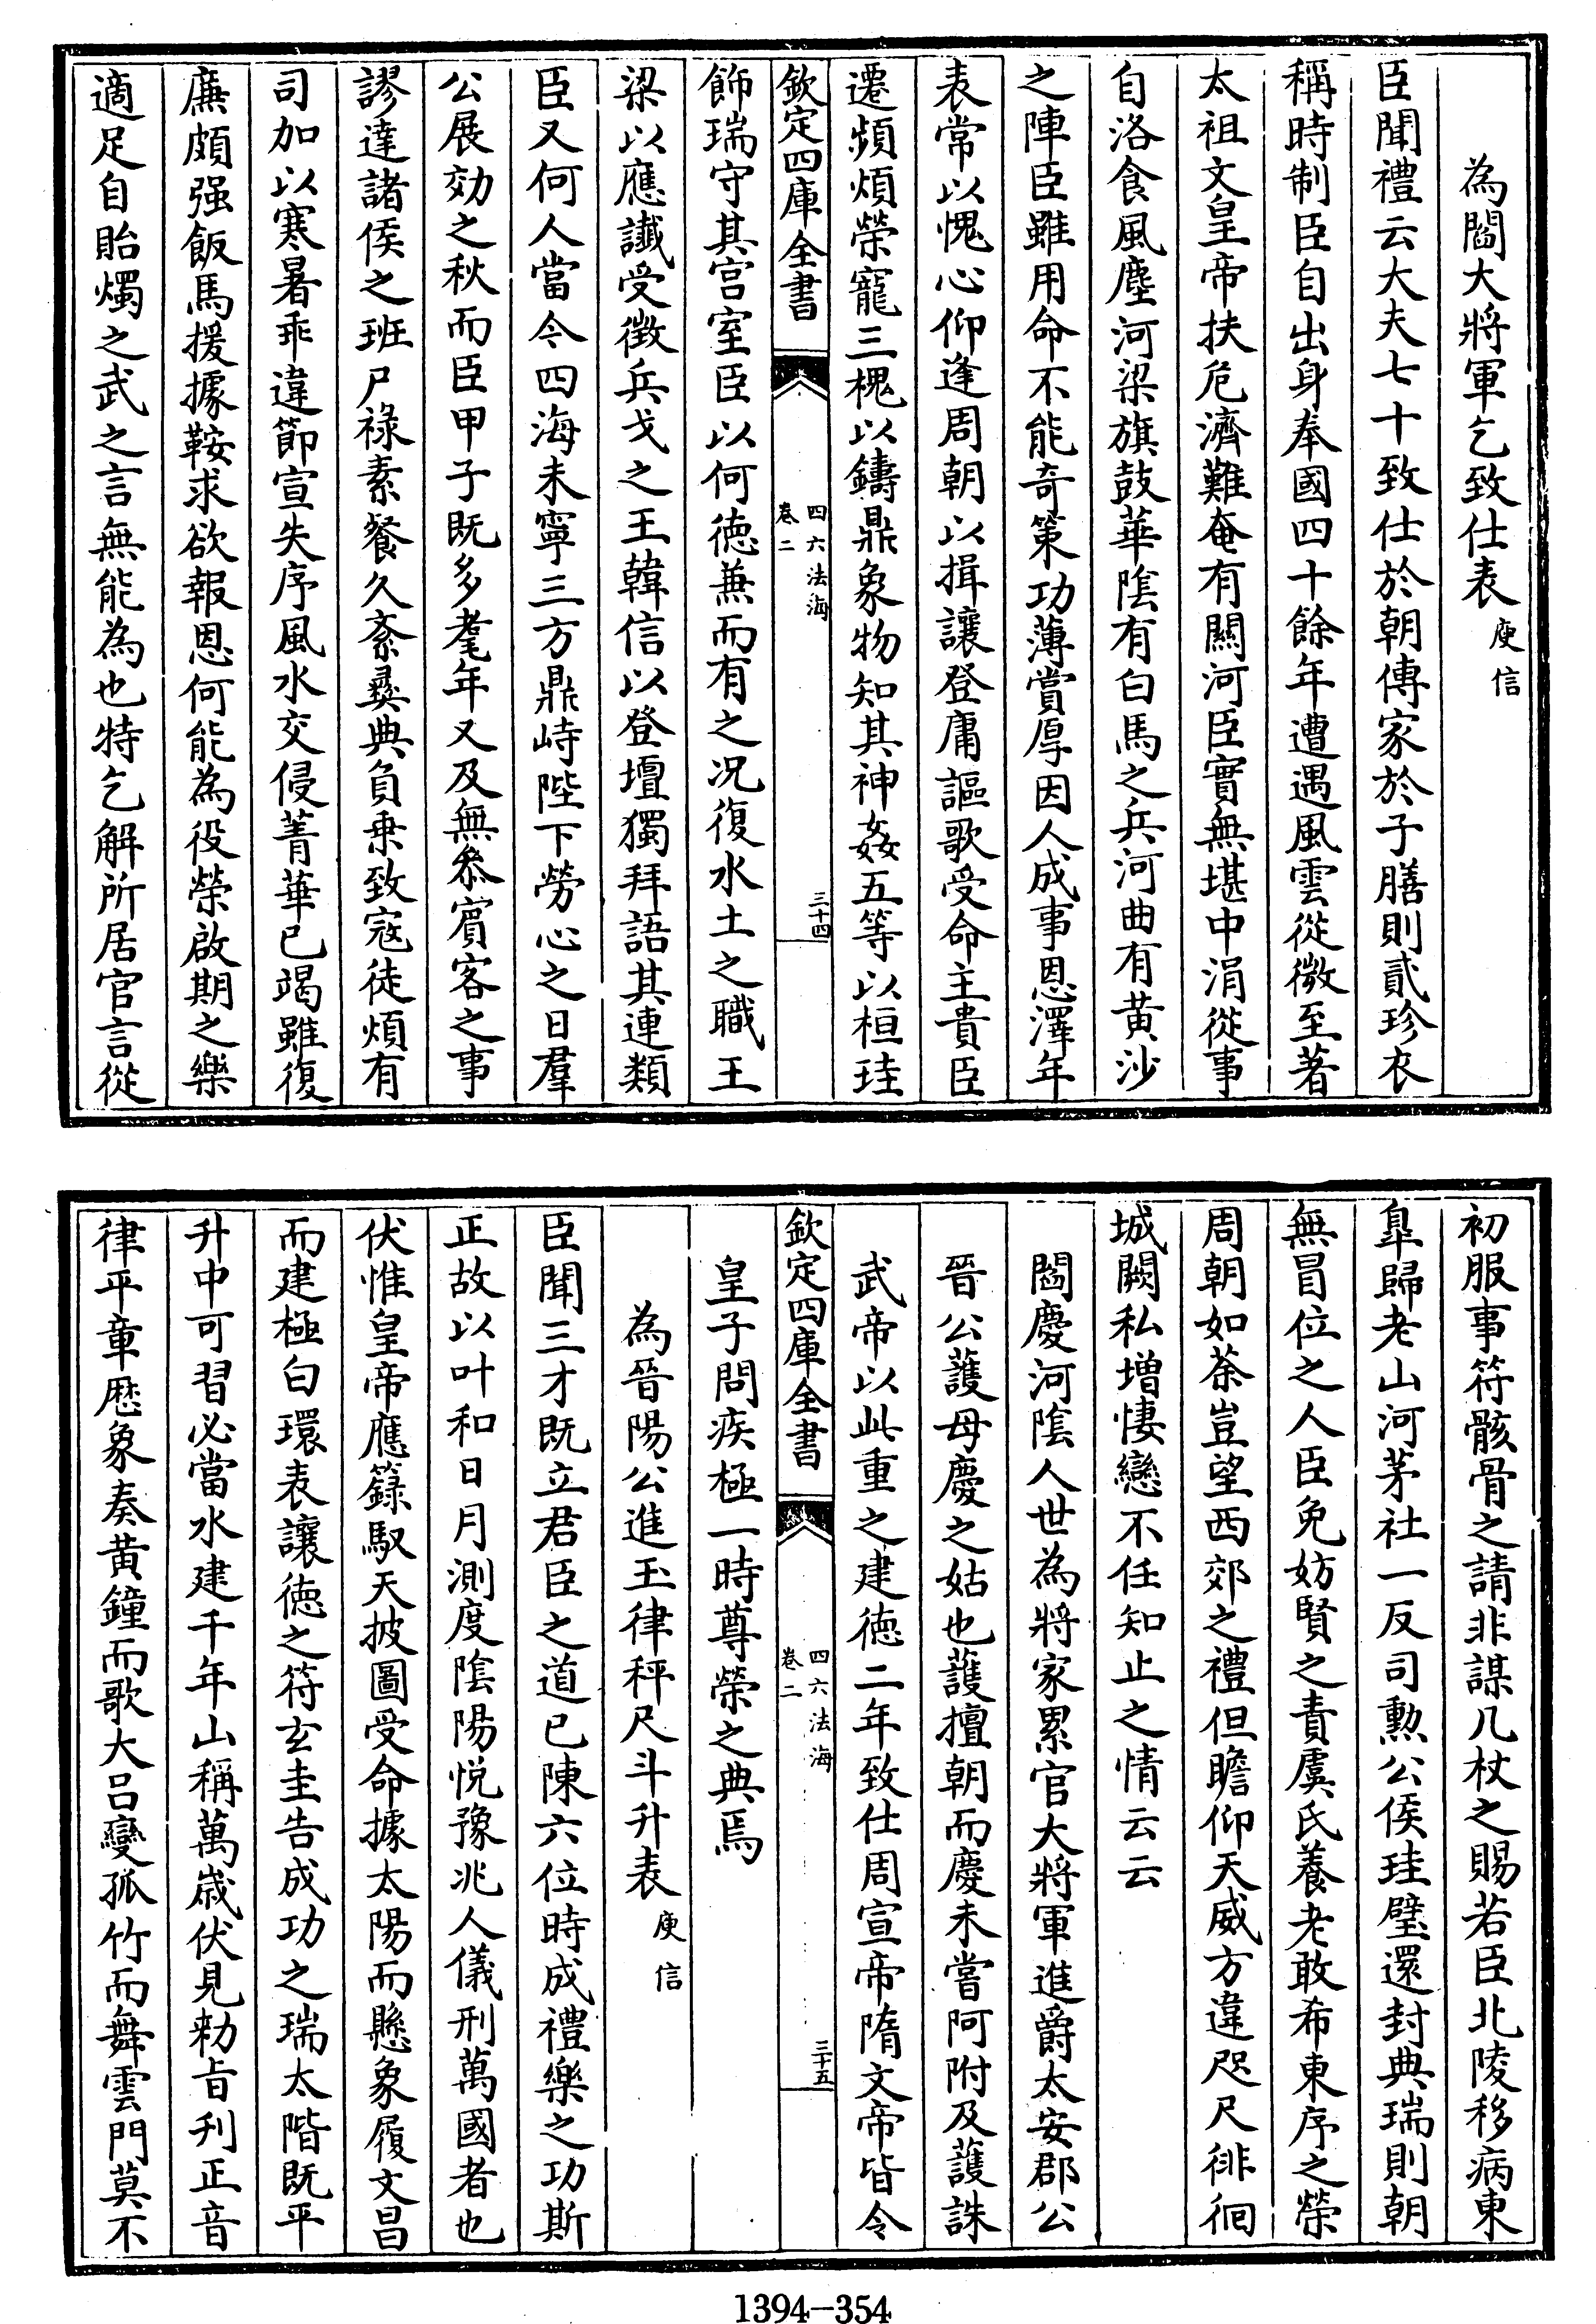 為閻大將軍乞致仕表庾信
臣聞禮云大夫七十致仕於朝傳家於子膳則貳珍衣
稱時制臣自出身奉國四十餘年遭遇風雲從微至著
太祖文皇帝扶危濟難奄有關河臣實無堪中涓從事
自洛食風塵河梁旗鼓華隂有白馬之兵河曲有黄沙
之陣臣雖用命不能奇策功薄賞厚因人成事恩澤年
表常以愧心仰逢周朝以揖讓登庸謳歌受命主貴臣
遷頻煩榮寵三槐以鑄鼎象物知其神姦五等以桓珪
欽定四庫全書
四六法海
卷二
三十四
飾瑞守其宫室臣以何徳兼而有之况復水土之職王
梁以應讖受徴兵戈之王韓信以登壇獨拜語其連類
臣又何人當今四海未寧三方鼎峙陛下勞心之日羣
公展効之秋而臣甲子既多耄年又及無叅賓客之事
謬達諸侯之班尸祿素餐久紊彞典負乗致寇徒煩有
司加以寒暑乖違節宣失序風水交侵菁華已竭雖復
廉頗强飯馬援據鞍求欲報恩何能為役榮啟期之樂
適足自貽燭之武之言無能為也特乞解所居官言從
初服事符骸骨之請非謀几杖之賜若臣北陵移病東
臯歸老山河茅社一反司勲公侯珪璧還封典瑞則朝
無冒位之人臣免妨賢之責虞氏養老敢希東序之榮
周朝如荼豈望西郊之禮但瞻仰天威方違咫尺徘徊
城闕私増悽戀不任知止之情云云
閻慶河隂人世為將家累官大將軍進爵太安郡公
晉公䕶母慶之姑也䕶擅朝而慶未嘗阿附及䕶誅
武帝以此重之建徳二年致仕周宣帝隋文帝皆令
欽定四庫全書
四六法海
卷二
三十五
皇子問疾極一時尊榮之典焉
為晉陽公進玉律秤尺斗升表庾信
臣聞三才既立君臣之道已陳六位時成禮樂之功斯
正故以叶和日月測度隂陽悦豫兆人儀刑萬國者也
伏惟皇帝應籙馭天披圖受命據太陽而懸象履文昌
而建極白環表讓徳之符玄圭告成功之瑞太階既平
升中可習必當水建千年山稱萬嵗伏見勅㫖刋正音
律平章厯象奏黄鐘而歌大吕變孤竹而舞雲門莫不
1394-354